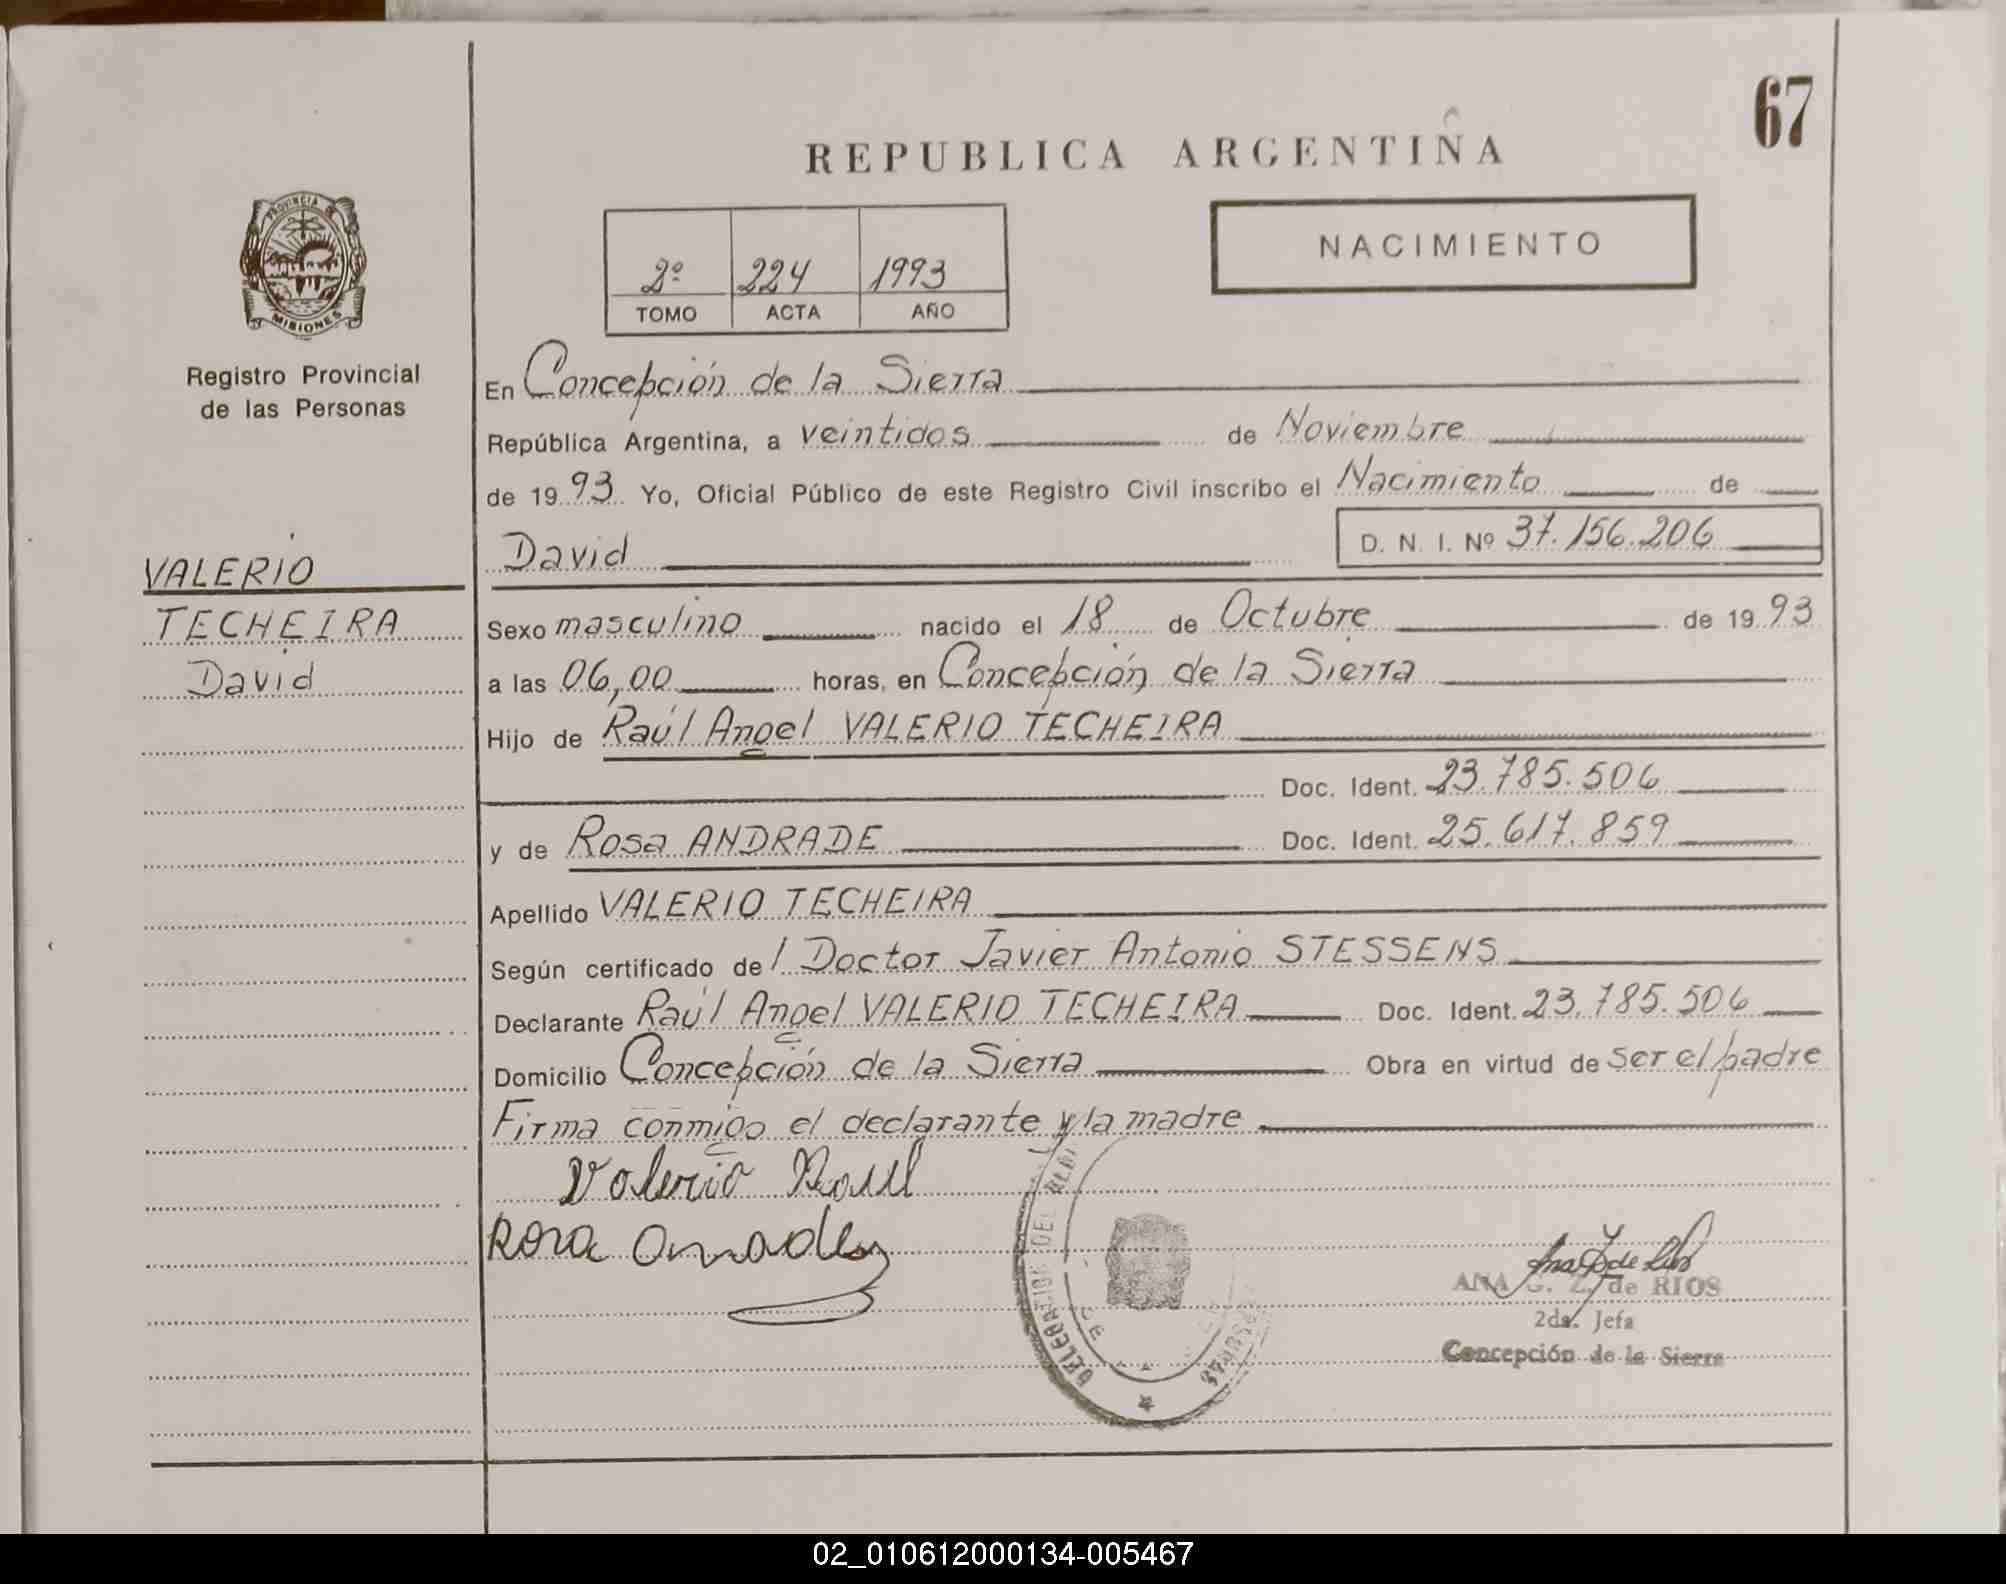 67
REPUBLICA ARGENTINA
PROVINCIA DE
MISIONES
Registro Provincial
de las Personas
2º 224 1993
TOMO ACTA AÑO
NACIMIENTO
En Concepción de la Sierra
República Argentina, a veintidos de Noviembre
de 1993 Yo, Oficial Público de este Registro Civil inscribo el Nacimiento de
David D. N. I. Nº 37.156.206
VALERIO
TECHEIRA
David
Sexo masculino nacido el 18 de Octubre de 1993
a las 06,00 horas, en Concepción de la Sierra
Hijo de Raúl Angel VALERIO TECHEIRA
Doc. Ident. 23.785.506
y de Rosa ANDRADE Doc. Ident. 25.617.859
Apellido VALERIO TECHEIRA
Según certificado del Doctor Javier Antonio STESSENS
Declarante Raúl Angel VALERIO TECHEIRA Doc. Ident. 23.785.506
Domicilio Concepción de la Sierra Obra en virtud de ser el padre
Firma conmigo el declarante y la madre
Valerio Raul
Rosa
DELEGACION DEL
ANA G. Z. de RIOS
2da. Jefa
Concepción de la Sierra
02_010612000134-005467